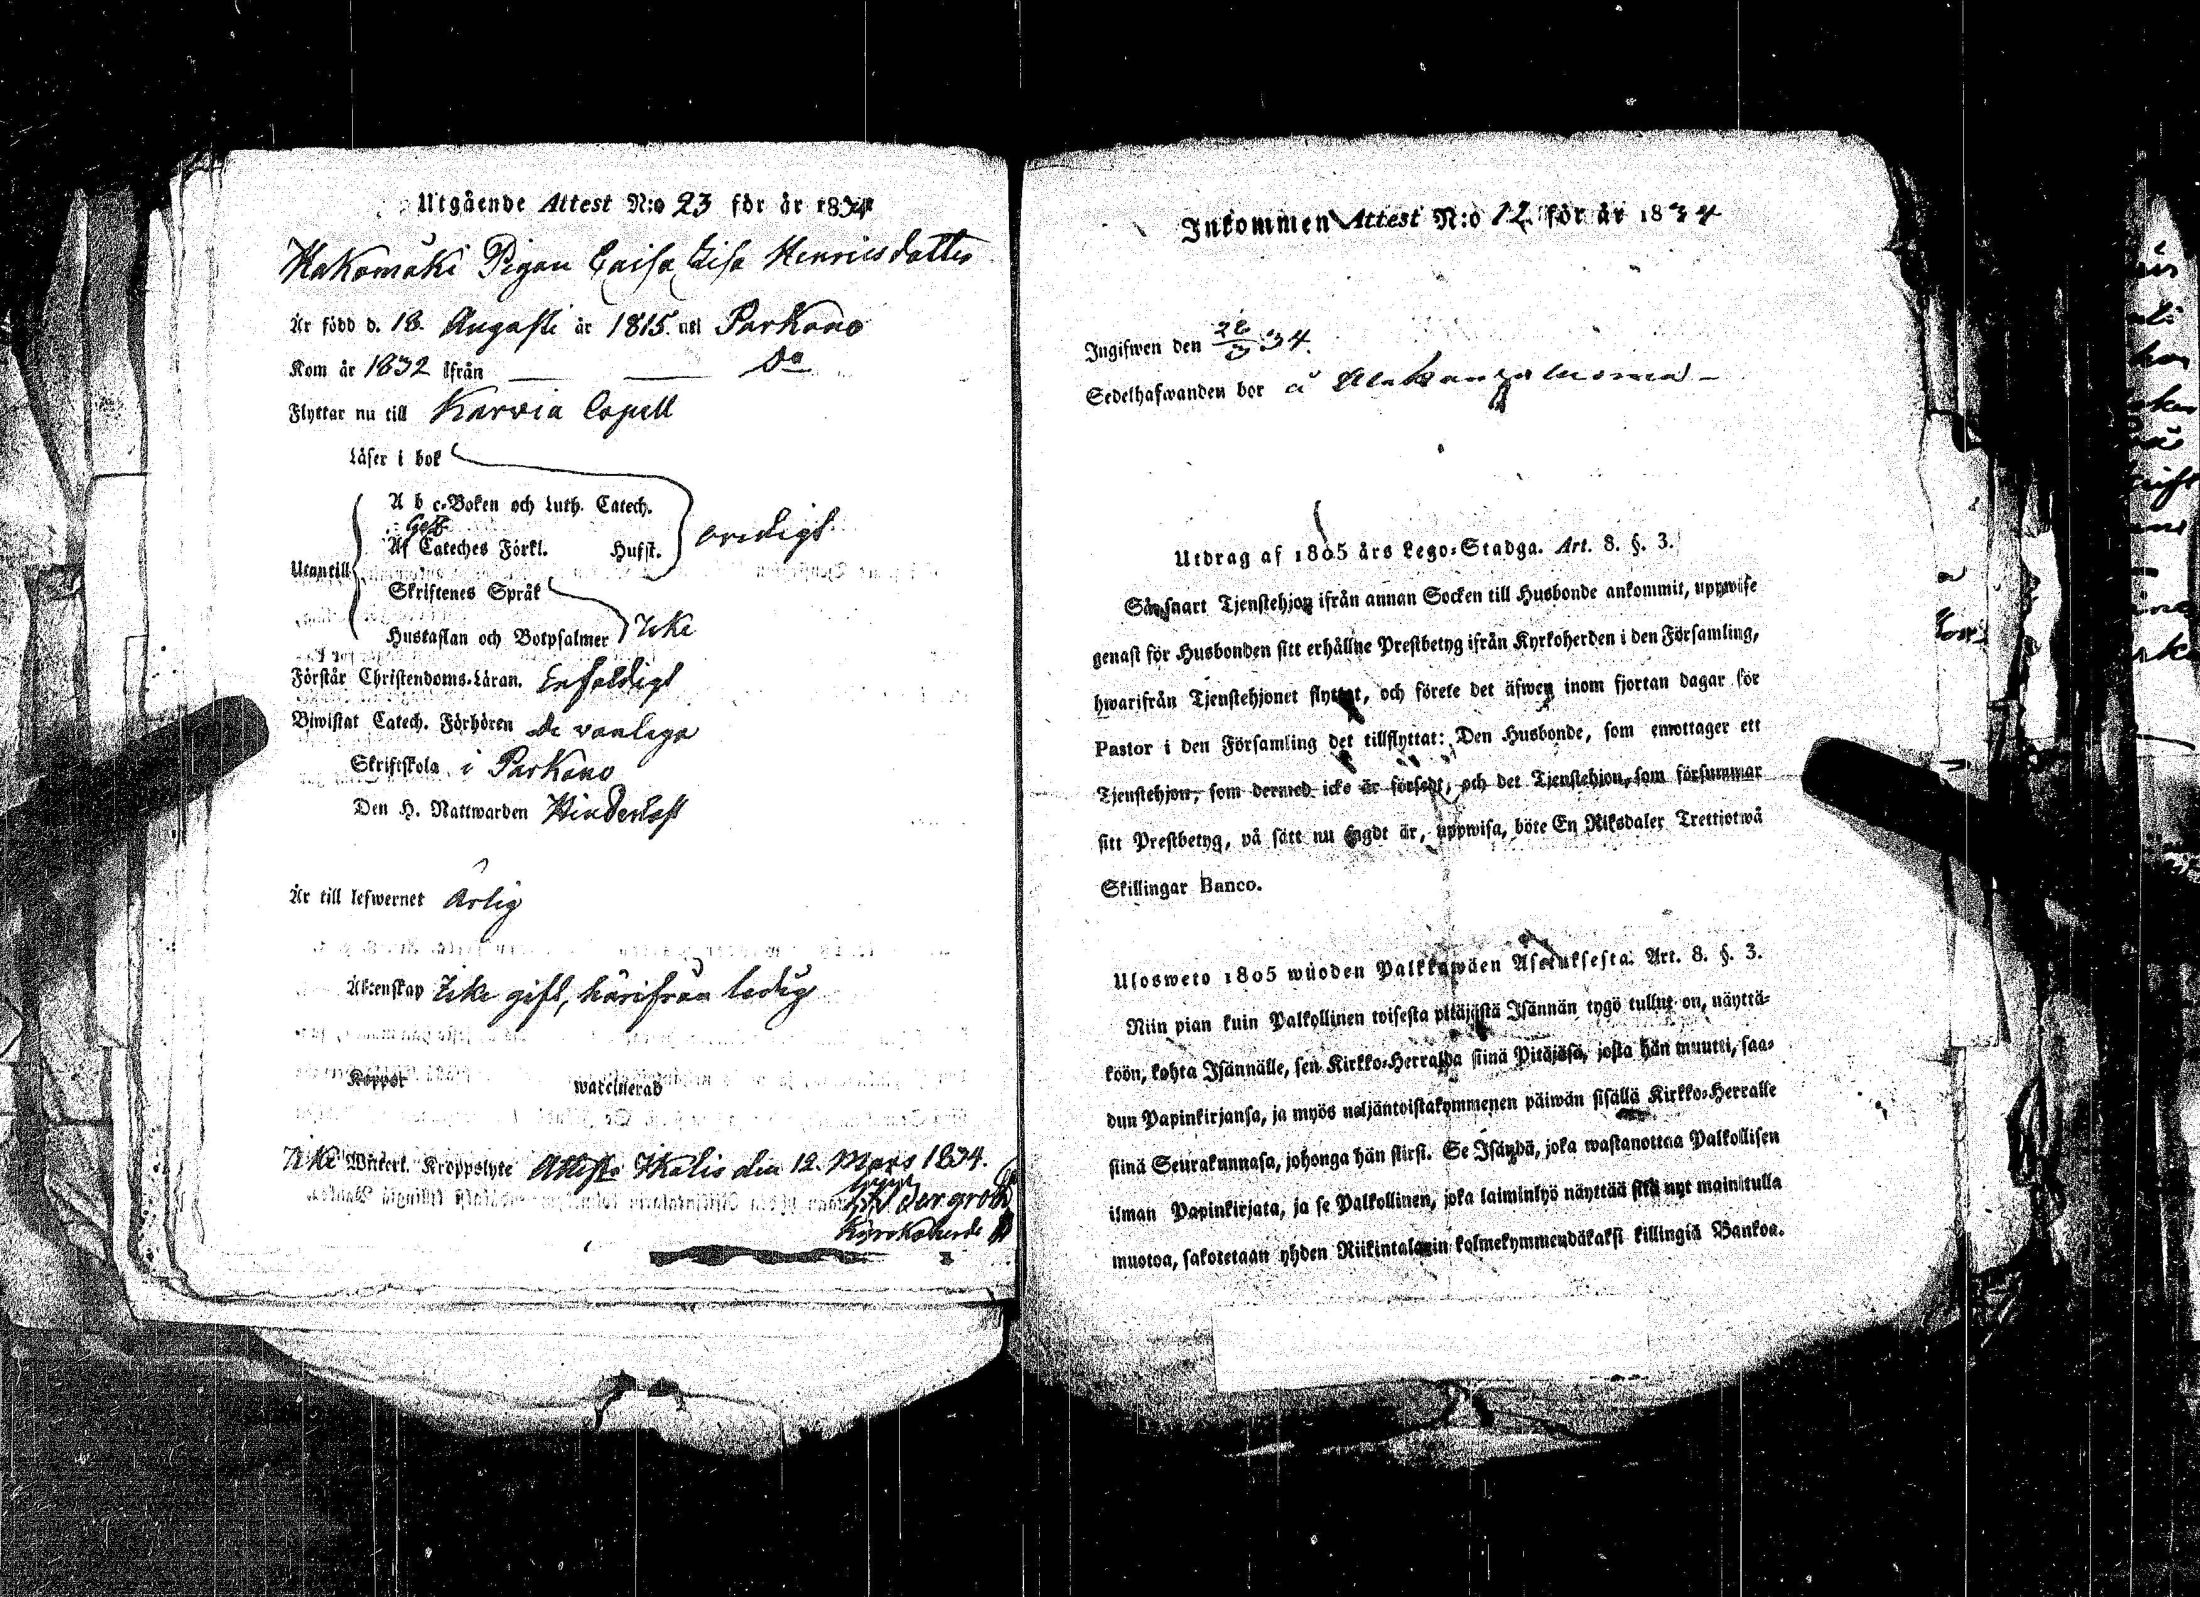 Utgående Attest N:o 23 för år 1834
Kakomäki Pigan Caisa Lisa Henricsdotter
Är född d. 18. Augusti år 1815. uti Parkano
Kom år 1832 ifrån — — Do
Flyttar nu till Karvia Capell
Läser i bok
A b c-Boken och Luth. Catech.
Af Cateches Förkl. Husft.
ordigt
Utantill
Skriftenes Språk
Hustaflan och Botpsalmer Icke
Förstår Christendoms-Läran. Enfaldigt
Biwistat Catech. Förhören de vanliga
Skriftskola i Parkano
Den H. Nattwarden Hinderlöst
Är till lefwernet Ärlig
Äktenskap Icke gift, härifrån ledig
Koppor waccinerad
Icke Witterl. Kroppslyte Attest. Ikalis den 12. Mars 1834.
Kyrkoherde
Inkommen Attest N:o 12 för år 1834
Ingifwen den 28/3 34.
Sedelhafwanden bor å
Utdrag af 1805 års Lego-Stadga. Art. 8. §. 3.
Så snart Tjenstehjon ifrån annan Socken till Husbonde ankommit, uppwise
genast för Husbonden sitt erhållne Prestbetyg ifrån Kyrkoherden i den Församling,
hwarifrån Tjenstehjonet flyttat, och förete det äfwen inom fjortan dagar för
Pastor i den Församling det tillflyttat: Den Husbonde, som emottager ett
Tjenstehjon, som dermed icke är försedt, och det Tjenstehjon, som försummar
sitt Prestbetyg, på sätt nu sagdt är, uppwisa, böte En Riksdaler Trettiotwå
Skillingar Banco.
Ulosweto 1805 wuoden Palkkawäen Asetuksesta. Art. 8. §. 3.
Niin pian kuin Palkollinen toisesta pitäjästä Isännän tygö tullut on, näyttä-
köön, kohta Isännälle, sen Kirkko-Herralda siinä Pitäjäsä, josta hän muutti, saa-
dun Papinkirjansa, ja myös neljäntoistakymmenen päiwän sisällä Kirkko-Herralle
siinä Seurakunnasa, johonga hän siirsi. Se Isändä, joka wastanottaa Palkollisen
ilman Papinkirjata, ja se Palkollinen, joka laiminlyö näyttää sitä nyt mainitulla
muotoa, sakotetaan yhden Riikintalarin kolmekymmendäkaksi killingiä Bankoa.